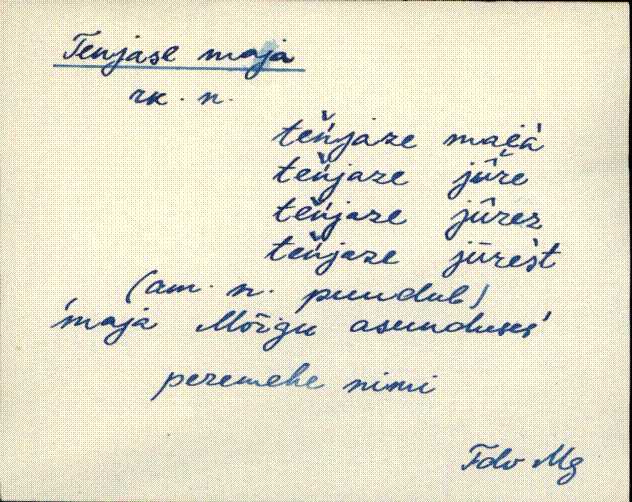 Tenjase maja
rk. n.
teňjaze maea
teňjaze jūre
teňjaze jūrez
teňjaze jūrest
(am. n. puudub)
'maja Mõigu asunduses'
peremehe nimi
Fdv Mg